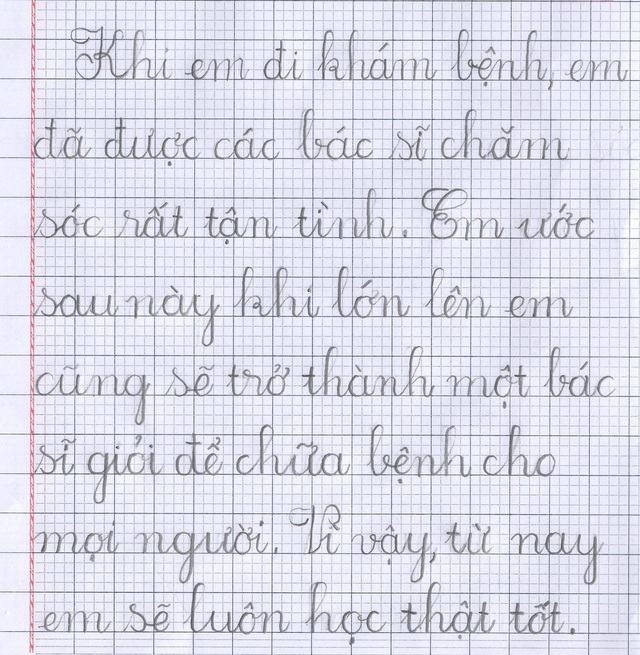 Khi em đi khám bệnh, em
đã được các bác sĩ chăm
sóc rất tận tình. Em ước
sau này khi lớn lên em
cũng sẽ trở thành một bác
sĩ giỏi để chữa bệnh cho
mọi người. Vì vậy, từ nay
em sẽ luôn học thật tốt.